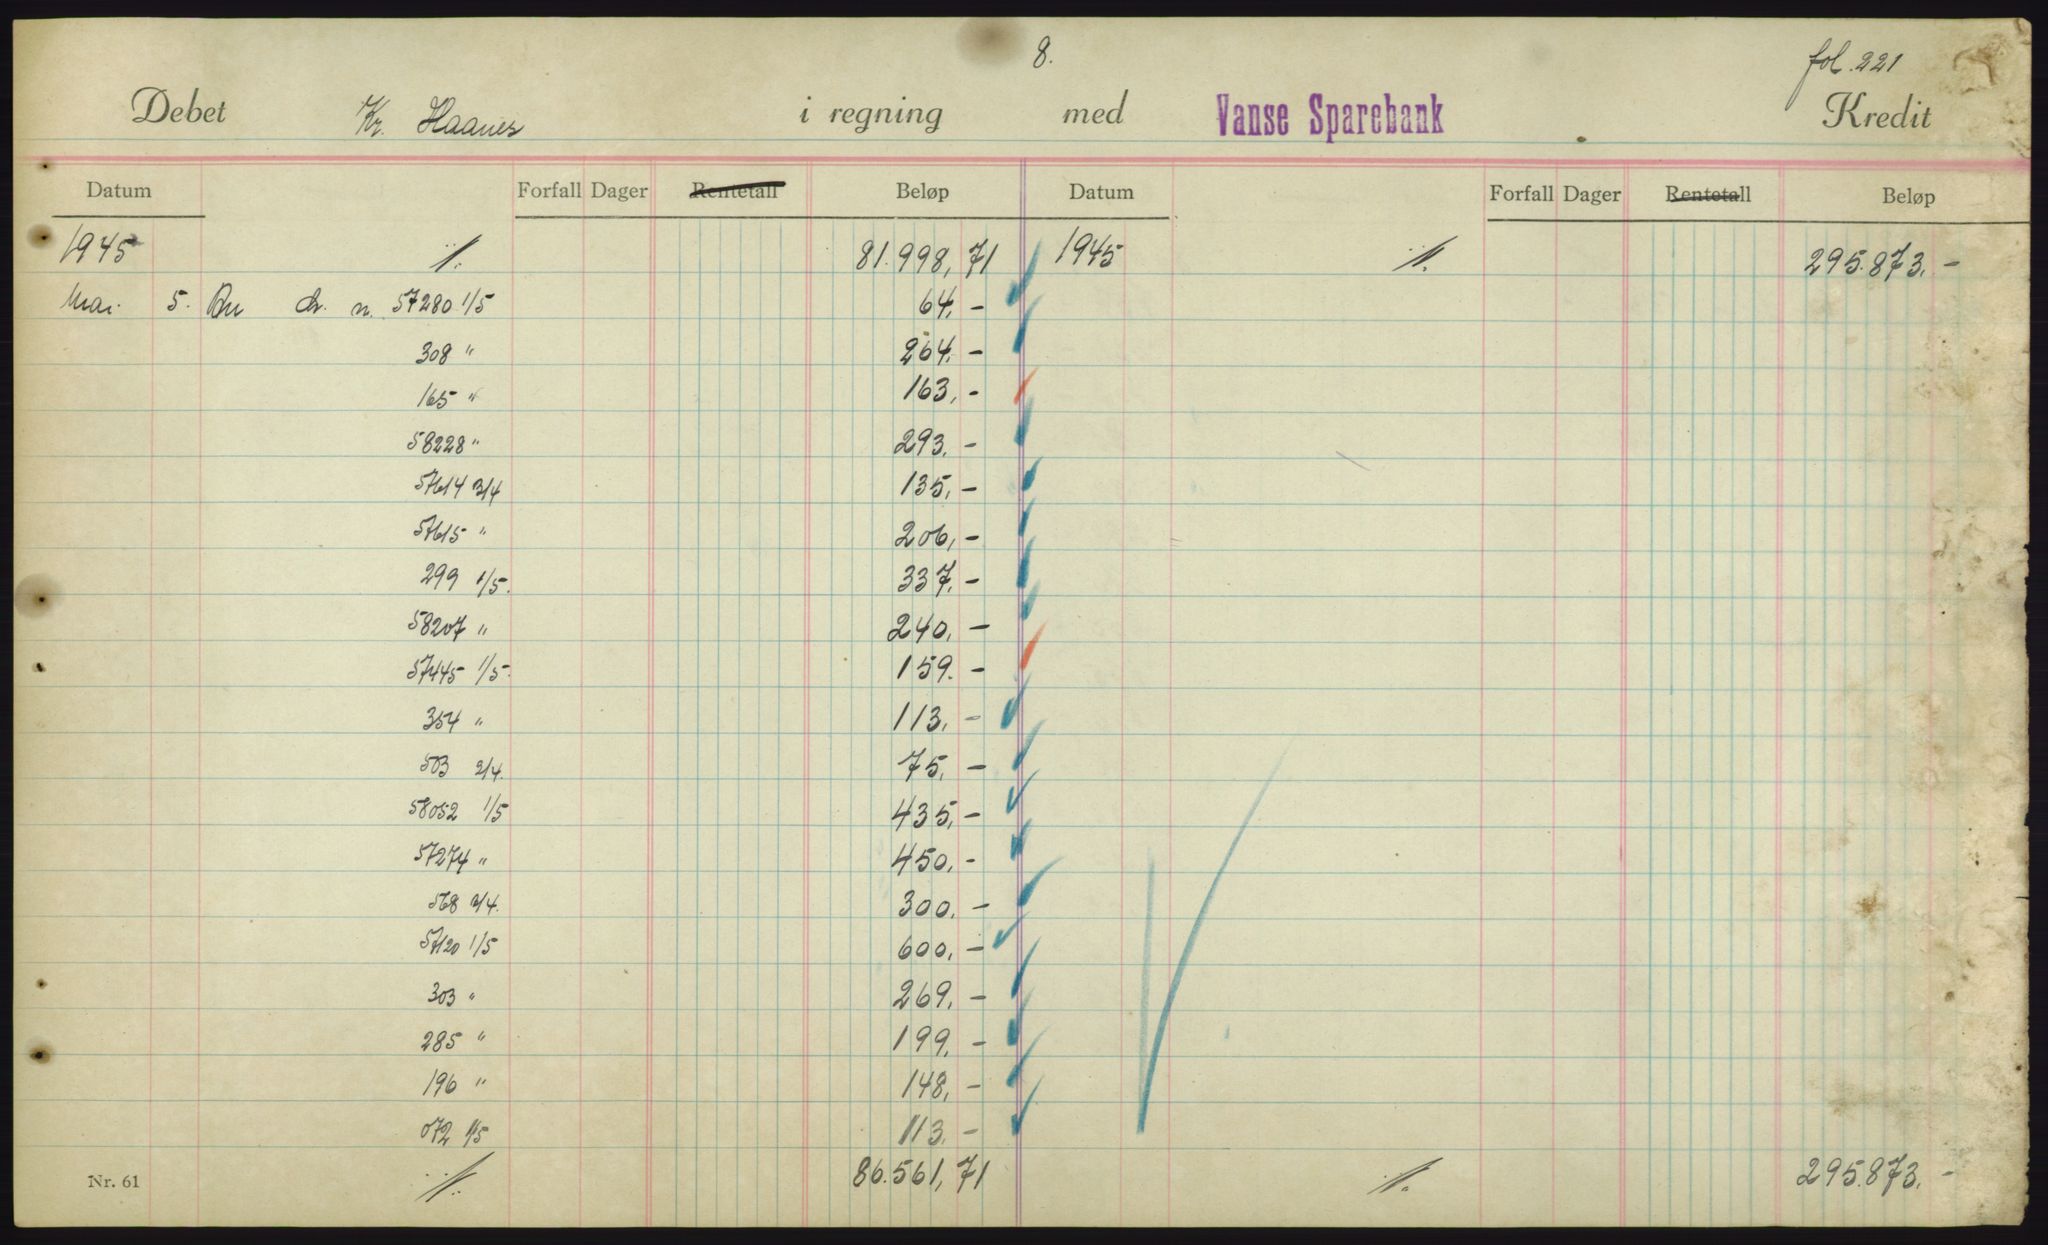 8.
fol. 221
Debet Kr. Haanes i regning med Vanse Sparebank Kredit
Datum Forfall Dager Rentetall Beløp Datum Forfall Dager Rentetall Beløp
1945 ·/. 81.998,71 1945 ·/. 295.873.-
Mai. 5. An ch. n. 57280 1/5 64,-
308 " 264.-
165 " 163,-
58228 " 293.-
57614 3/4 135,-
57615 " 206,-
299 1/5. 337,-
58207 " 240,-
57445 1/5. 159.-
354 " 113,-
503 2/4. 75,-
58052 1/5 435,-
57274 " 450,-
568 2/4. 300,-
57120 1/5 600,-
303 " 269,-
285 " 199,-
196 " 148,-
072 1/5 113,-
Nr. 61 ·/. 86.561,71 ·/. 295.873.-